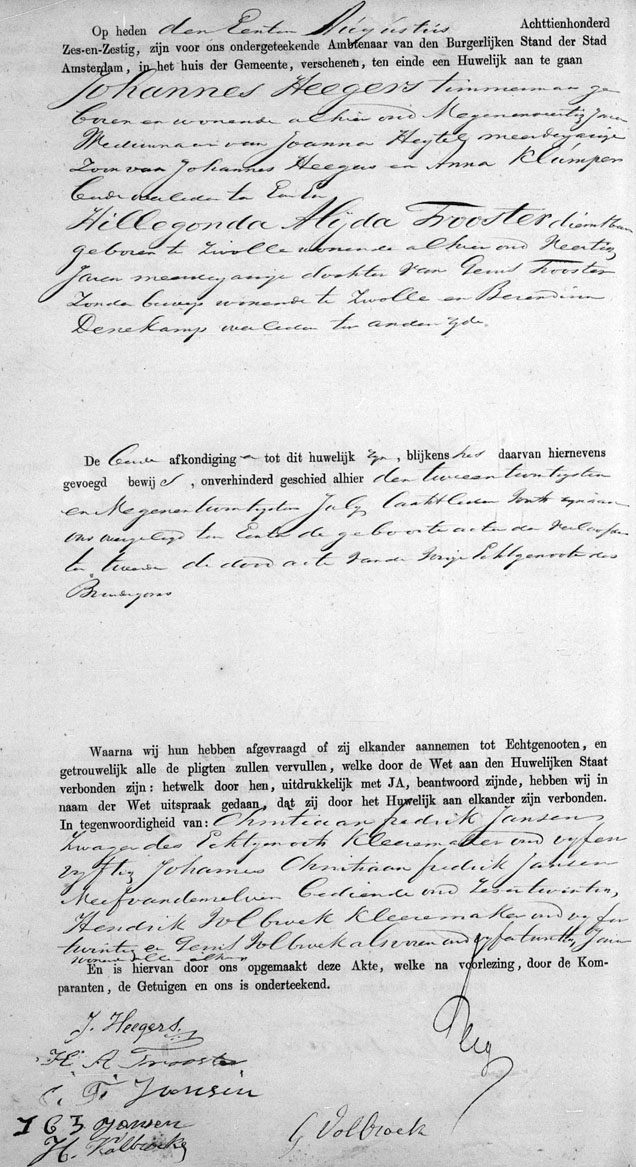 Op heden den Eersten Augustus Achttienhonderd
Zes-en-Zestig, zijn voor ons ondergeteekende Ambtenaar van den Burgerlijken Stand der Stad
Amsterdam, in het huis der Gemeente, verschenen, ten einde een Huwelijk aan te gaan
Johannes Heegers timmerman ge
boren en wonende alhier oud Negenenveertig Jaren
Weduwnaar van Joanna Heytel meerderjarige
Zoon van Johannes Heegers en Anna Klümper
beide overleden ter Eenre En
Hillegonda Alijda Trooster dienstbare
geboren te Zwolle wonende alhier oud Veertig
Jaren meerderjarige dochter van Gerrit Trooster
Zonder beroep wonende te Zwolle en Berendina
Denekamp overleden ter andere zyde.
De beide afkondiging en tot dit huwelijk zyn, blijkens het daarvan hiernevens
gevoegd bewij s, onverhinderd geschied alhier den tweeentwintigsten
en Negenentwintigsten July laatstleden Voorts zyn aan
ons overgelegd ten Eerste de geboorteacten der Verloofden
ten tweede de dood acte van de Vorige Echtgenoote des
Bruidegoms
Waarna wij hun hebben afgevraagd of zij elkander aannemen tot Echtgenooten, en
getrouwelijk alle de pligten zullen vervullen, welke door de Wet aan den Huwelijken Staat
verbonden zijn: hetwelk door hen, uitdrukkelijk met JA, beantwoord zijnde, hebben wij in
naam der Wet uitspraak gedaan, dat zij door het Huwelijk aan elkander zijn verbonden.
In tegenwoordigheid van: Christiaan fredrik Jansen
Zwager des Echtgenoots Kleermaker oud vyfen
vyftig Johannes Christiaan fredrik Jansen
Neef van denzelven bediende oud Zevenentwintig,
Hendrik Volbroek Kleermaker oud vyfen
twintig en Gerrit Volbroek alsvoren oud vyfentwintig Jaren
wonende allen alhier
En is hiervan door ons opgemaakt deze Akte, welke na voorlezing, door de Kom-
paranten, de Getuigen en ons is onderteekend.
J. Heegers
H. A Trooster
C. F. Jansen
J C F Jansen
H. Volbroek
G Volbroek